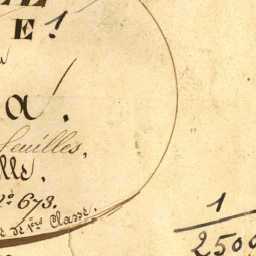 E. 1
a.
feuilles,
lle.
N.º 673.
de 1.ère Classe.
1
2500